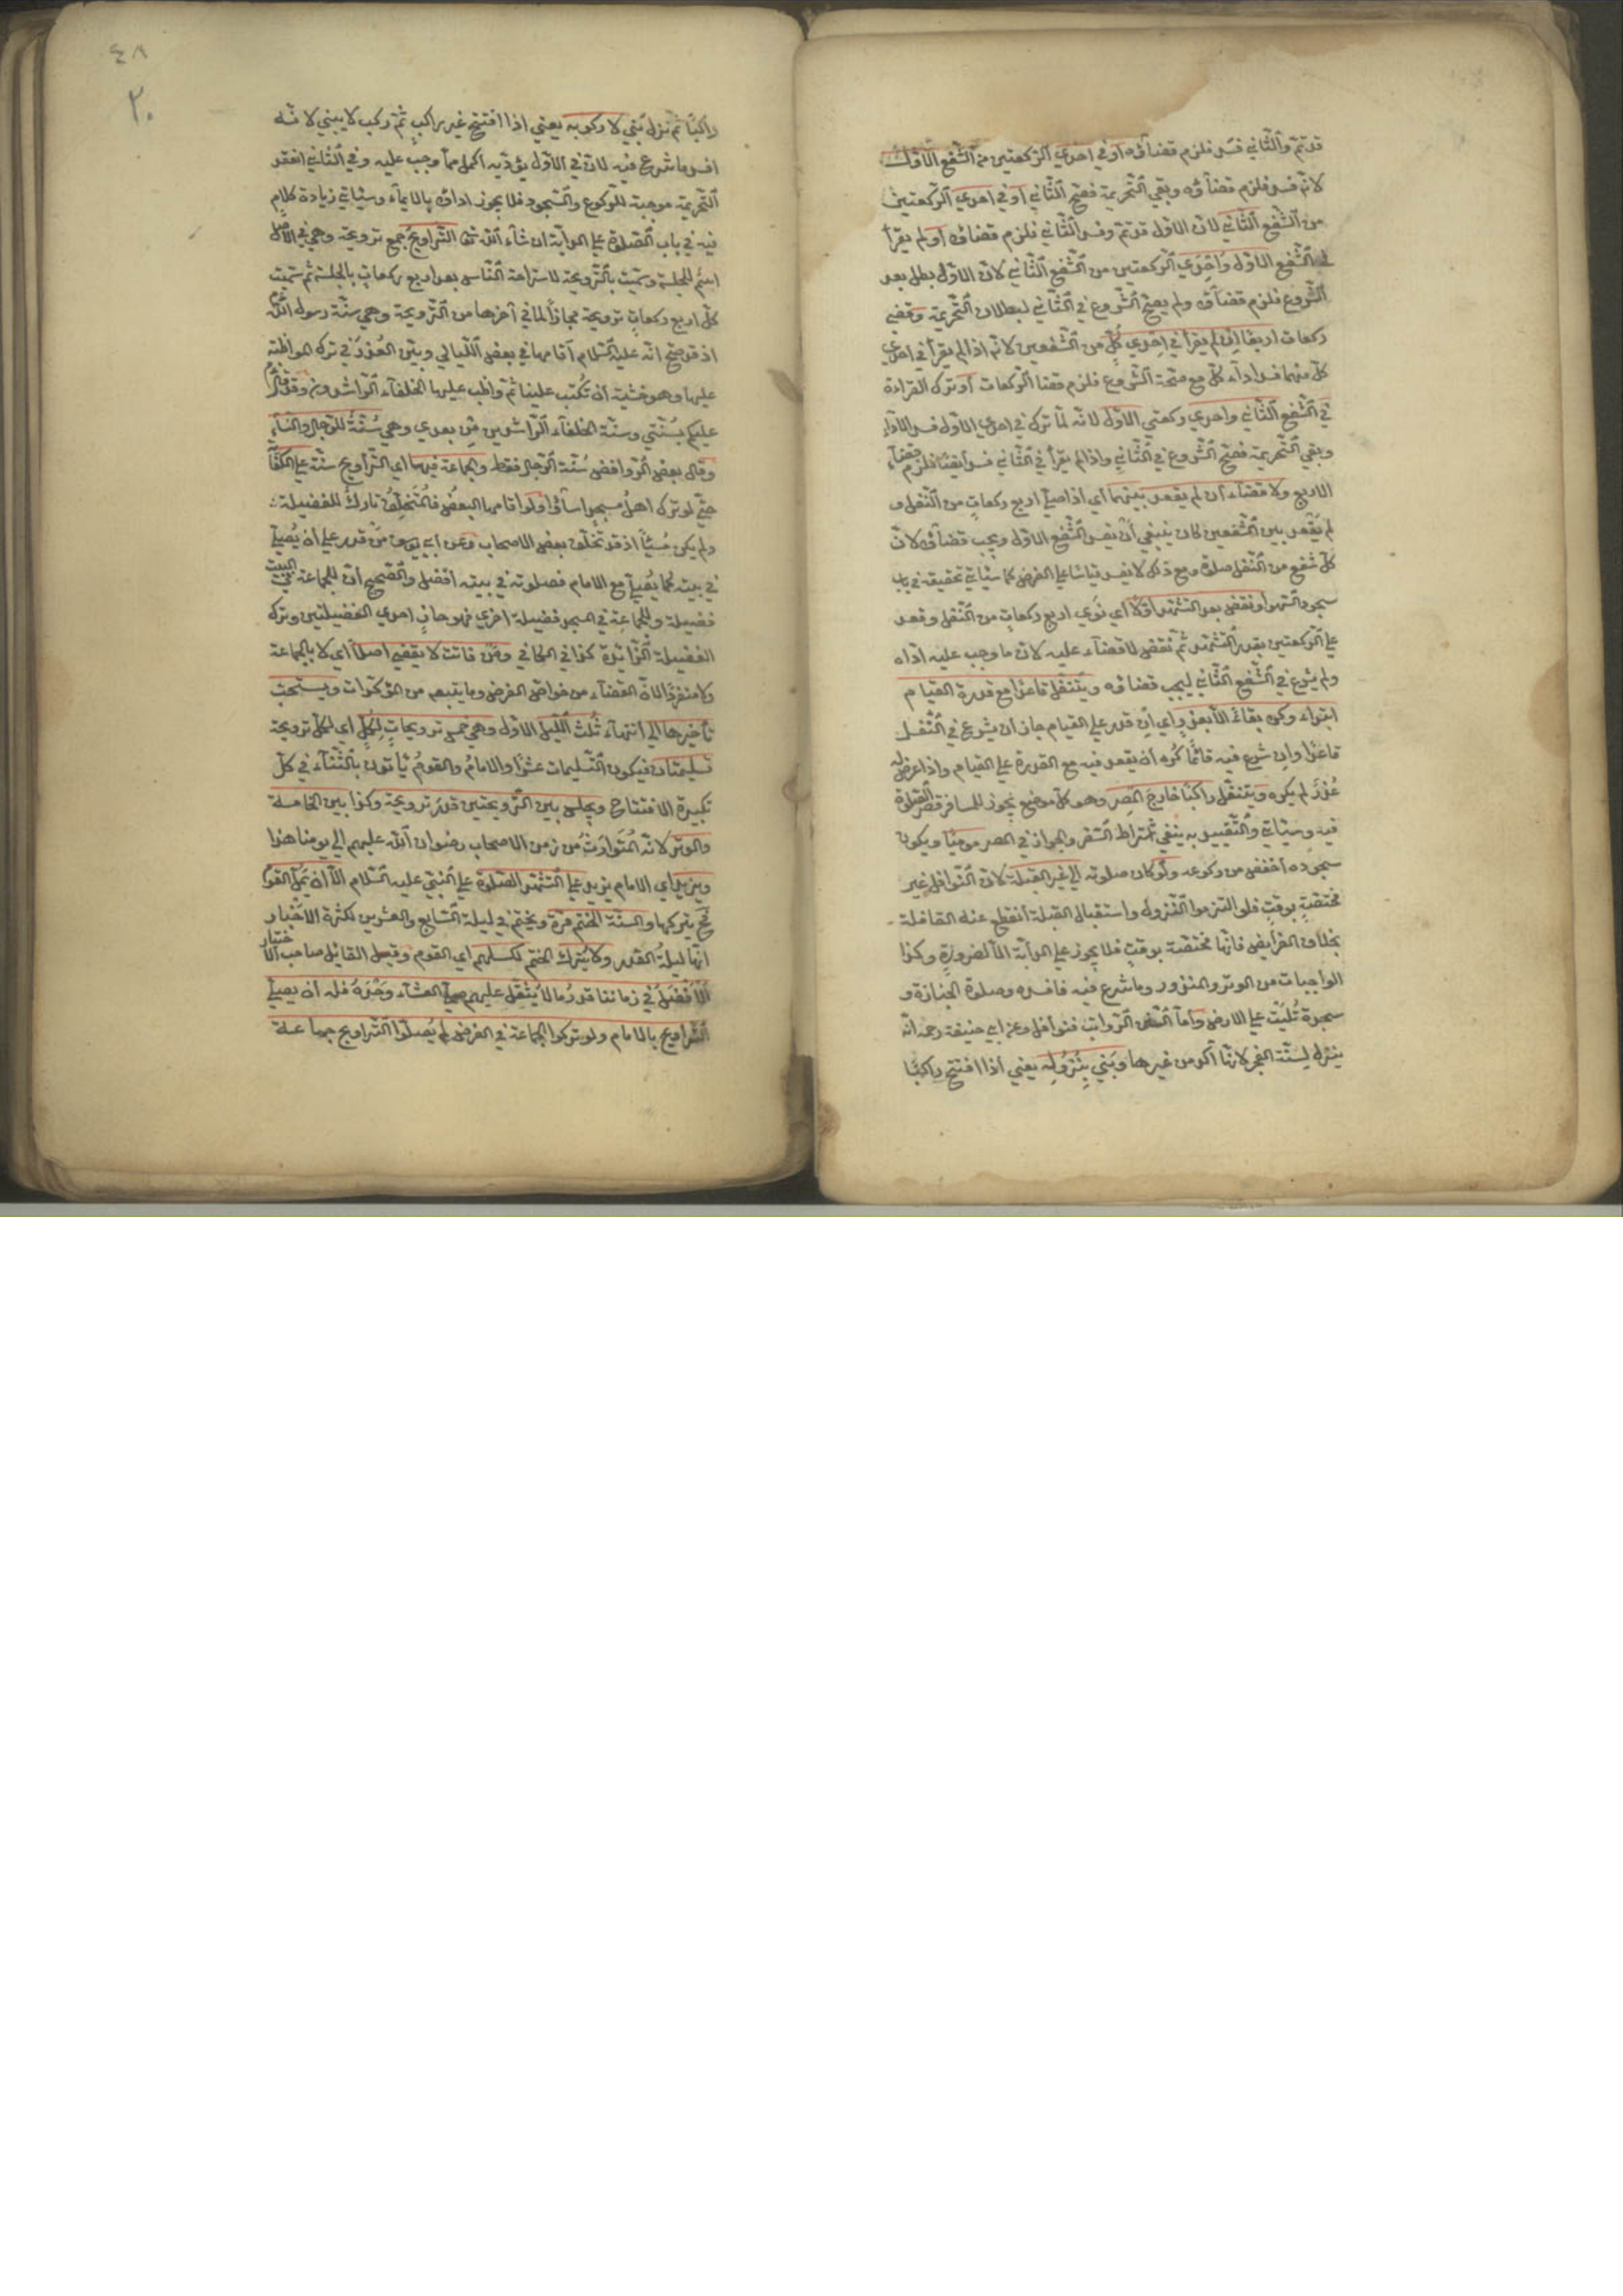 قد تمّ والثاني فسد فلزم قضاؤه أو في احدي الركعتين من الشفع الاول
لانه فسد فلزم قضاؤه وبقي التحريمة فصح الثاني أو في احدي الركعتين
من الشفع الثاني لان الاول قد تم وفسد الثاني فلزم قضاؤه أو لم يقرأ
في الشفع الاول واحدي الركعتين من الشفع الثاني لان الاول بطل بعد
الشروع فلزم قضاؤه ولم يصح الشروع في الثاني لبطلان التحريمة وقضي
ركعات اربعا ان لم يقرأ في احدي كل من الشفعين لانه اذا لم يقرأ في احدي
كل منهما فسد اداء كل مع صحة الشروع فلزم قضا الركعات أو ترك القراءة
في الشفع الثاني واحدي ركعتي الاول لانه لما ترك في احدي الاول فسد الاداء
وبقي التحريمة فصح الشروع في الثاني واذا لم يقرأ في الثاني فسد أيضا فلزم قضاء
الاربع ولا قضاء أن لم يقعد بينهما أي اذا صلي اربع ركعات من النفل و
لم يقعد بين الشفعين كان ينبغي أن يفسد الشفع الاول ويجب قضاؤه لان
كل شفع من النفل صلوة ومع ذلك لا يفسد قياسا علي الفرض كما سيأتي تحقيقه في باب
سجود السهو أو نقض بعد التشهد اولا أي نوي اربع ركعات من النفل وقعد
علي الركعتين بقدر التشهد ثم نقض لا قضاء عليه لان ما وجب عليه اداه
ولم يشرع في الشفع الثاني ليجب قضاؤه ويتنفل قاعدا مع قدرة القيام
ابتداء وكره بقاء الا بعذر أي ان قدر علي القيام جاز ان يشرع في النفل
قاعدا وان شرع فيه قائما كره أن يقعد فيه مع القدرة علي القيام واذا عرض له
عذر لم يكره ويتنفل راكبا خارج المصر وهو كل موضع يجوز للمسافر قصر الصلوة
فيه وسيأتي والتقييد به ينفي اشتراط السفر والجواز في المصر موميا ويكون
سجوده أخفض من ركوعه ولو كان صلوته الي غير القبلة لان النوافل غير
مختصة بوقت فلو التزموا النزول واستقبال القبلة انقطع عنه القافلة
بخلاف الفرايض فانها مختصة بوقت فلا يجوز علي الدابة الا لضرورة وكذا
الواجبات من الوتر والمنذور وما شرع فيه فافسده وصلوة الجنازة و
سجدة تليت علي الارض وأما السنن الرواتب فنوافل وعن ابي حنيفة رحمه انه
ينزل لسنة الفجر لانها آكد من غيرها وبني بنزوله يعني أذا افتتح راكبا
٤٨
٢٠
راكبا ثم نزل بني لا ركوبه يعني اذا افتتح غير راكب ثم ركب لا يبني لانه
افسد ما شرع فيه لان في الاول يؤديه اكمل مما وجب عليه وفي الثاني انعقد
التحريمة موجبة للركوع والسجود فلا يجوز اداؤه بالايماء وسيأتي زيادة كلام
فيه في باب الصلوة علي الدابة ان شاء الله تعا التراويح جمع ترويحة وهي في الاصل
اسم للجلسة وسميت بالترويحة لاستراحة الناس بعد اربع ركعات بالجلسة ثم سميت
كل اربع ركعات ترويحة مجازا لما في آخرها من الترويحة وهي سنة رسول الله
اذ قد صح انه عليه السلام أقامها في بعض الليالي وبين العذر في ترك المواظبة
عليها وهو خشية أن تكتب علينا ثم واظب عليها الخلفاء الراشدون وقد قال
عليكم بسنتي وسنة الخلفاء الراشدين من بعدي وهي سنة للرجال والنساء
وقال بعض الروافض سنة الرجال فقط والجماعة فيها اي التراويح سنة علي الكفاية
حتي لو ترك اهل مسجد اساؤا ولو اقامها البعض فالمتخلف تارك للفضيلة
ولم يكن مسيئا اذ قد تخلف بعض الاصحاب وعن ابي يوسف من قدر علي أن يصلي
في بيته كما يصلي مع الامام فصلوته في بيته أفضل والصحيح أن للجماعة في البيت
فضيلة وللجماعة في المسجد فضيلة اخري فهو حاز احدي الفضيلتين وترك
الفضيلة الزائدة كذا في الكافي ومن فاتت لا يقضي اصلا أي لا بالجماعة
ولا منفردا لان القضاء من خواص الفرض وما يتبعه من المؤكدات ويستحب
تأخيرها الي انتهاء ثلث الليل الاول وهي خمس ترويحات لكل أي لكل ترويحة
تسليمتان فيكون التسليمات عشرا والامام والقوم يأتون بالثناء في كل
تكبيرة الافتتاح ويجلس بين الترويحتين قدر ترويحة وكذا بين الخامسة
والوتر لانه المتوارث من زمن الاصحاب رضوان الله عليهم الي يومنا هذا
ويزيد اي الامام يزيد علي التشهد الصلوة علي النبي عليه السلام الا ان يمل القوم
فح يتركها والسنة الختم مرة ويختم في ليلة السابع والعشرين لكثرة الاخبار
انها ليلة القدر ولا يترك الختم لكسلهم اي القوم وقيل القائل صاحب الاختيار
الافضل في زماننا قدر ما لا يثقل عليهم صلي العشاء وحده فله أن يصلي
التراويح بالامام ولو تركوا الجماعة في الفرض لم يصلوا التراويح جماعة